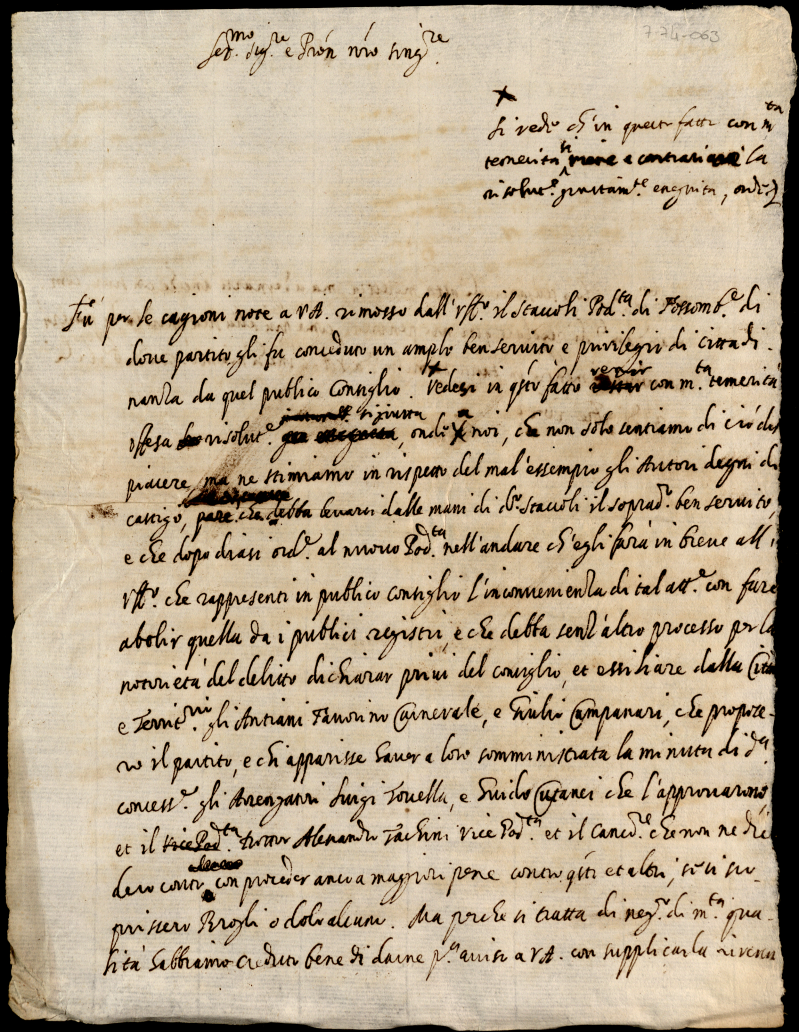 7-74-063
Ser.mo Sig.re e Pron nro sing.re
Si vede ch'in questo fatto con m.ta
temerità si la
risolut.e giustam.te eseguita, onde
Fu per le cagioni note a V.A. rimosso dall'uff.o il Staccoli Pod.tà di Fossomb.e di
dove partito gli fu conceduto un amplo benservito e privilegio di Cittadi-
nanza da quel publico Consiglio. Vedesi in q.sto fatto venir con m.ta temerità
offesa risolut.e si giusta, onde a noi, che non solo sentiamo di ciò dis
piacere, ma ne stimiamo in rispetto del mal'essempio gli Autori degni di
castigo, pare che debba levarsi dalle mani di d.o Staccoli il soprad.o ben servito,
e che dopo diasi ord.e al nuovo Pod.tà nell'andare ch'egli farà in breve all'
uff.o che rappresenti in publico consiglio l'inconvenienza di tal att.e con fare
abolir quella da i publici registri, e che debba senz'altro processo per la
notorietà del delitto dichiarar privi del consiglio, et essiliare dalla Città
e Territ.rio gli Antiani Favorino Carnevale, e Giulio Campanari, che propose-
ro il partito, e chi apparisse haver a loro somministrata la minuta di d.a
concess.e gli Arengatori Luigi Tovella, e Guido Catanei che l'approvarono,
et il vice Pod.tà Dottor Alessandro Fachini vice Pod.tà et il Canc.re che non ne die
dero conto, con proceder anco a maggiori pene contro q.sti et altri, se si sco-
prissero Brogli o dolo alcuno. Ma perche si tratta di neg.o di m.ta qua-
lità habbiamo creduto bene di darne p.a aviso a V.A. con supplicarla riveren